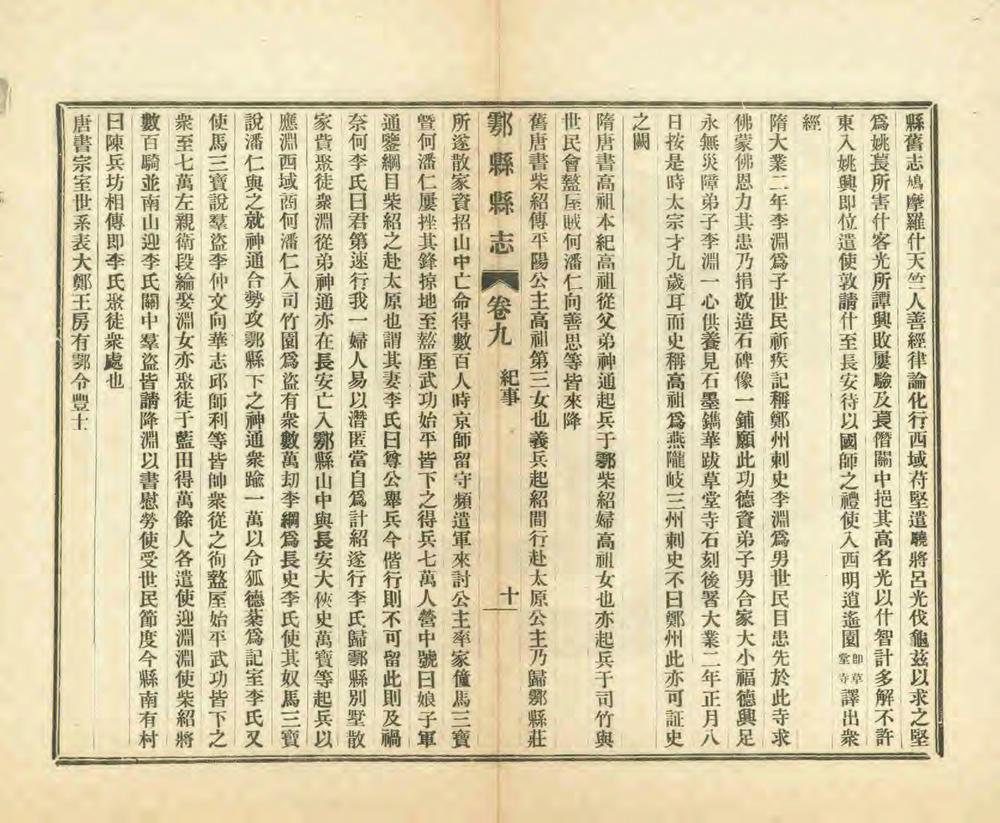 縣舊志鳩摩羅什天竺人善經律論化行西域苻堅遣驍將呂光伐龜茲以求之堅
爲姚萇所害什客光所譚興敗屢驗及萇僭關中挹其高名光以什智計多解不許
東入姚興即位遣使敦請什至長安待以國師之禮使入西明逍遙園即草堂寺譯出衆
經
隋大業二年李淵爲子世民祈疾記稱鄭州刺史李淵爲男世民目患先於此寺求
佛蒙佛恩力其患乃捐敬造石碑像一鋪願此功德資弟子男合家大小福德興足
永無災障弟子李淵一心供養見石墨鐫華跋草堂寺石刻後署大業二年正月八
日按是時太宗才九歲耳而史稱高祖爲燕隴岐三州刺史不曰鄭州此亦可証史
之闕
隋唐書高祖本紀高祖從父弟神通起兵于鄠柴紹婦高祖女也亦起兵于司竹與
世民會盩厔賊何潘仁向善思等皆來降
舊唐書柴紹傳平陽公主高祖第三女也義兵起紹間行赴太原公主乃歸鄠縣莊
鄠縣縣志 卷九 紀事 十
所遂散家資招山中亡命得數百人時京師留守頻遣軍來討公主率家僮馬三寶
曁何潘仁屢挫其鋒掠地至盩厔武功始平皆下之得兵七萬人營中號曰娘子軍
通鑒綱目柴紹之赴太原也謂其妻李氏曰尊公舉兵今偕行則不可留此則及禍
奈何李氏曰君第速行我一婦人易以潛匿當自爲計紹遂行李氏歸鄠縣別墅散
家貲聚徒衆淵從弟神通亦在長安亡入鄠縣山中與長安大俠史萬寶等起兵以
應淵西域商何潘仁入司竹園爲盜有衆數萬刼李綱爲長史李氏使其奴馬三寶
說潘仁與之就神通合勢攻鄠縣下之神通衆踰一萬以令狐德棻爲記室李氏又
使馬三寶說羣盜李仲文向華志邱師利等皆帥衆從之徇盩厔始平武功皆下之
衆至七萬左親衛段綸娶淵女亦聚徒于藍田得萬餘人各遣使迎淵淵使柴紹將
數百騎並南山迎李氏關中羣盜皆請降淵以書慰勞使受世民節度今縣南有村
曰陳兵坊相傳即李氏聚徒衆處也
唐書宗室世系表大鄭王房有鄠令豐士